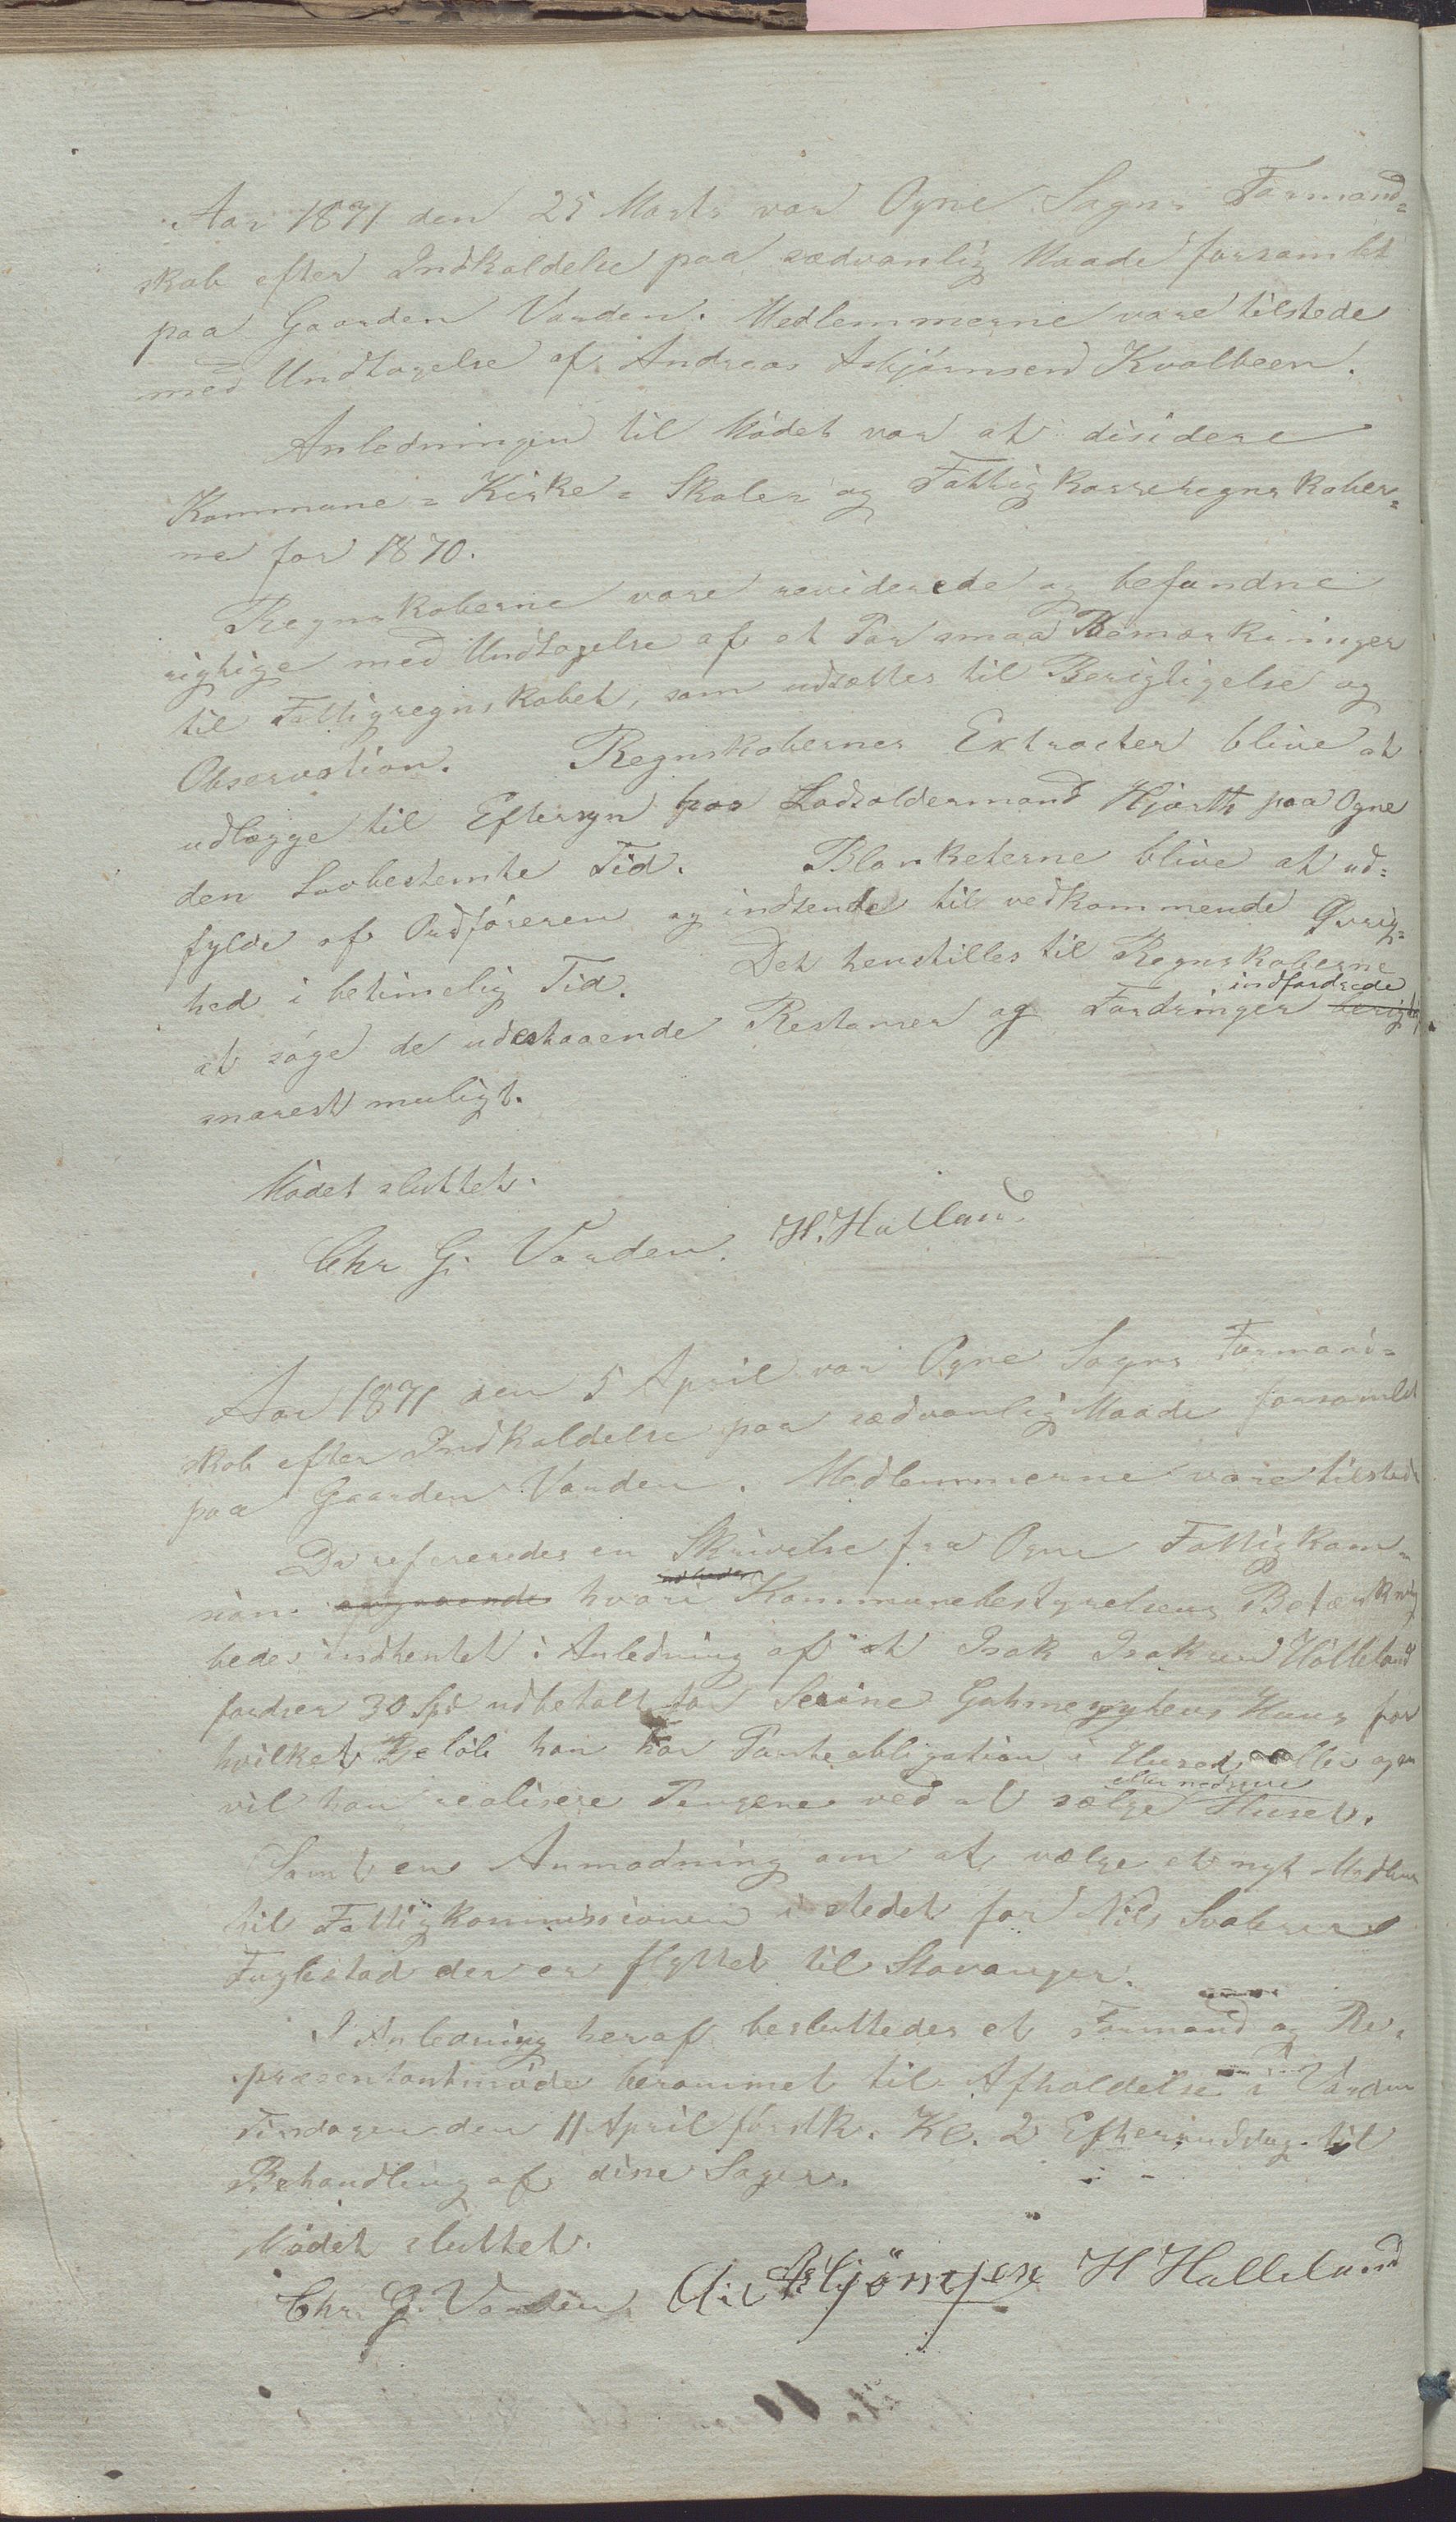 Aar 1871 den 25 Marts var Ogne Sogns Formand=
skab efter Indkaldelse paa sædvanlig Maade forsamlet
paa Gaarden Varden. Medlemmerne vare tilstede
med Undtagelse af Andreas Asbjörnsen Kvalbeen.
Anledningen til Mödet var at disidere
Kommune= Kirke= Skole= og Fattigkasseregnskaber=
ne for 1870.
Regnskaberne vare reviderede og befundne
rigtige med Undtagelse af et Par smaa Bemærkninger
til Fattigregnskabet, som udsættes til Berigtigelse og
Observation. Regnskabernes Extracter blive at
udlægge til Eftersyn hos Lodsoldermand Hjorth paa Ogne
den Lovbestemte Tid. Blanketerne blive at ud=
fylde af Ordföreren og indsende til vedkommende Øvrig=
hed i betimelig Tid. Det henstilles til Regnskaberne
at söge de udestaaende Restanser og Fordringer indfordrede
snarest muligt.
Mödet sluttet.
Chr G. Varden. H. Halland
Aar 1871 den 5 April var Ogne Sogns Formand=
skab efter Indkaldelse paa sædvanlig Maade forsamlet
paa Gaarden Varden. Medlemmerne vare tilstede
Da refereredes en Skrivelse fra Ogne Fattigkom=
sion hvori Kommunebestyrelsens Betænkning
bedes indhentet i Anledning af at Isak Isaksen Hölleland
fordrer 30 Spd udbetalt for Serine Huus for
hvilket Belöb han har Panteobligation i Huset, eller ogsaa
vil han realisere Pengene ved at sælge eller nedrive Huset.
Samt en Anmodning om at vælge et nyt Medlem
til Fattigkommissionen i stedet for Nils Svalesen
Fuglestad der er flyttet til Stavanger.
I Anledning heraf besluttedes et Formand og Re=
præsentantmöde berammet til Afholdelse i Varden
Tirsdagen den 11 April förstk. Kl. 2 Eftermiddag til
Behandling af disse Sager.
Mödet sluttet.
Chr. G. Varden. A. Asbjörnsen H Halleland